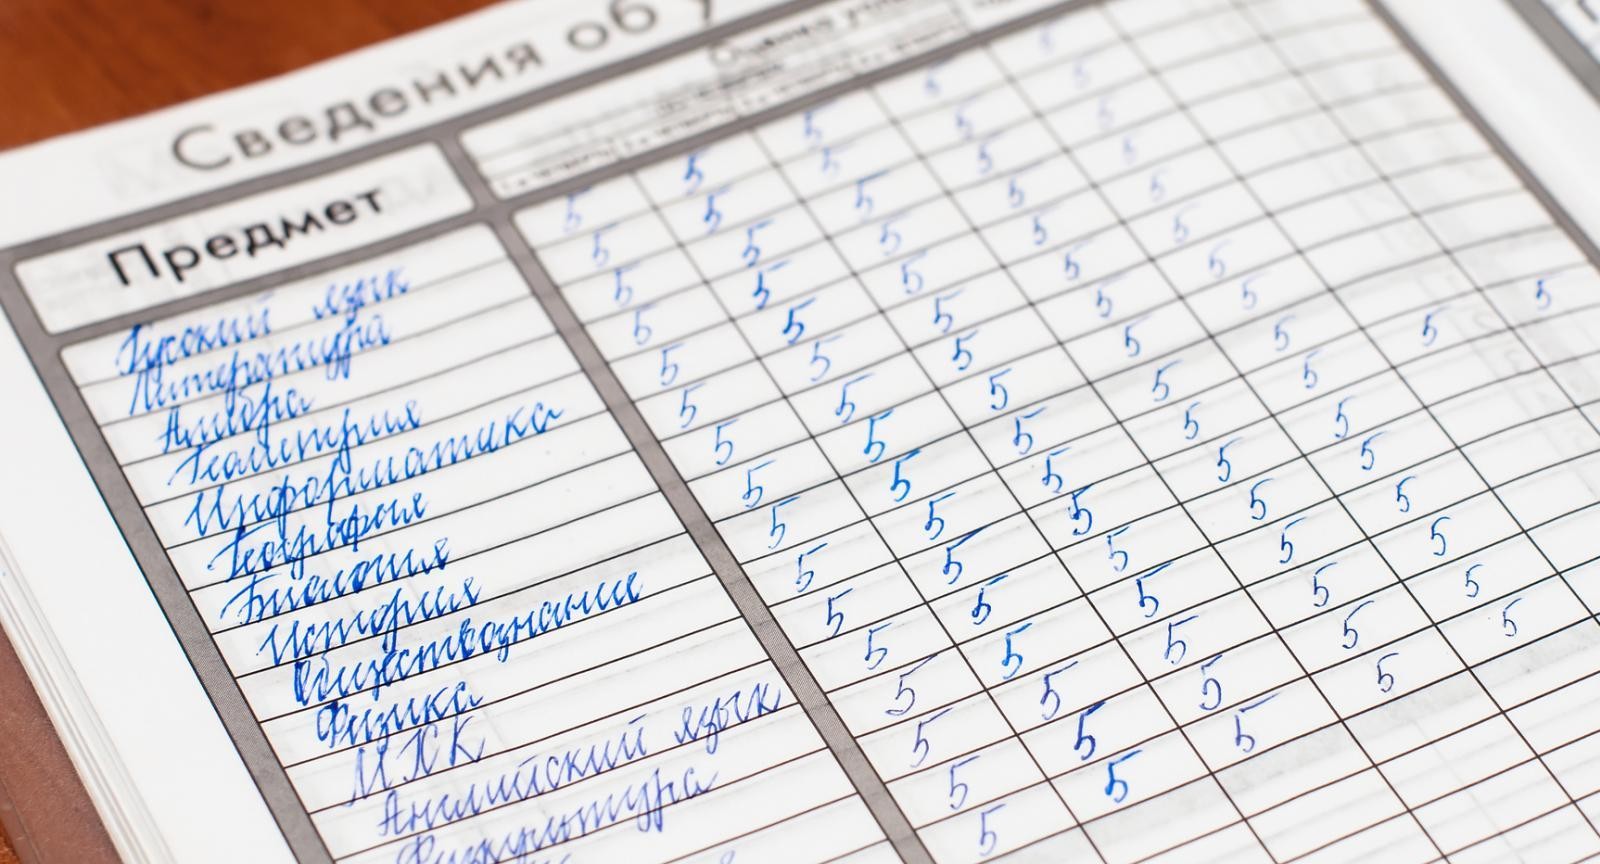 Сведения об у
Предмет
Оценка
Русский язык 5 5 5 5 5
Литература 5 5 5 5 5
Алгебра 5 5 5 5 5
Геометрия 5 5 5 5 5
Информатика 5 5 5 5 5
География 5 5 5 5 5
Биология 5 5 5 5 5
История 5 5 5 5 5
Обществознание 5 5 5 5 5
Физика 5 5 5 5 5
МХК 5 5 5 5 5
Английский язык 5 5 5 5 5
Физкультура 5 5 5 5 5